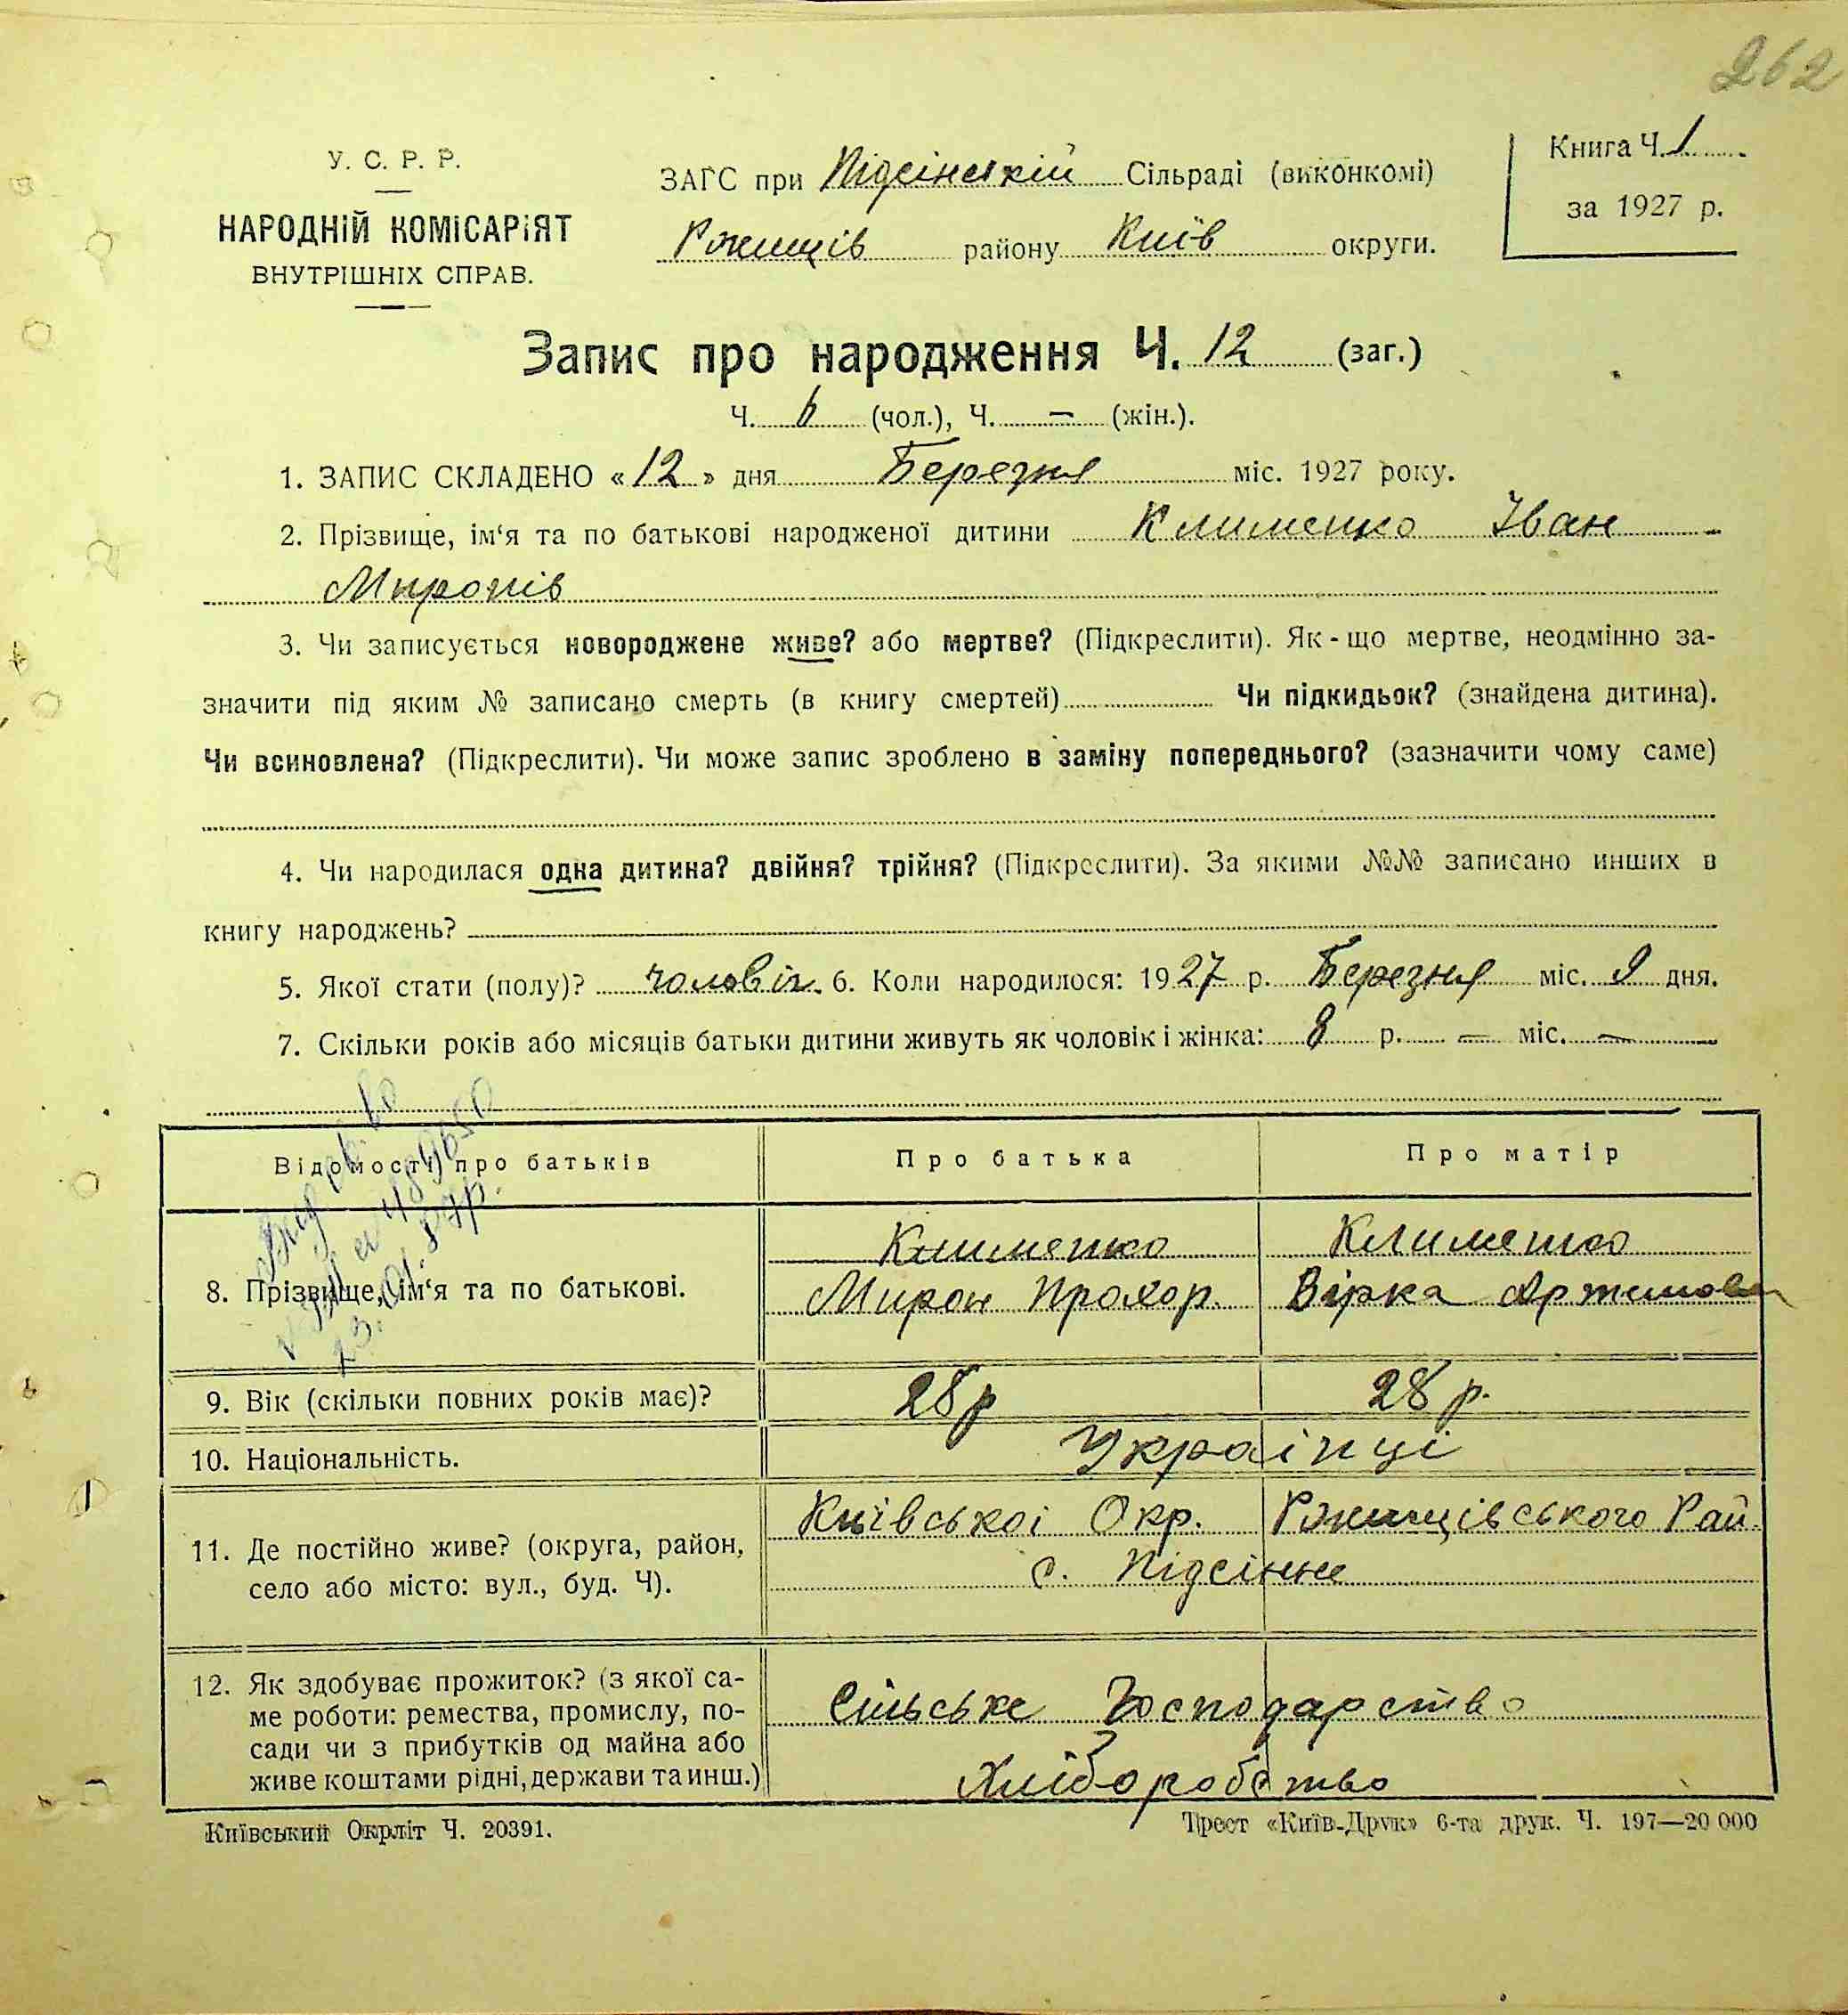 262
У. С. Р. Р.
НАРОДНІЙ КОМІСАРІЯТ
ВНУТРІШНІХ СПРАВ.
ЗАГС при Підсінській Сільраді (виконкомі)
Ржищів району Київ округи.
Книга Ч. 1
за 1927 р.
Запис про народження Ч. 12 (заг.)
Ч. 6 (чол.), Ч. — (жін.).
1. ЗАПИС СКЛАДЕНО «12» дня Березня міс. 1927 року.
2. Прізвище, ім‘я та по батькові народженої дитини Клименко Іван
Миронів
3. Чи записується новороджене живе? або мертве? (Підкреслити). Як-що мертве, неодмінно за-
значити під яким № записано смерть (в книгу смертей) Чи підкидьок? (знайдена дитина).
Чи всиновлена? (Підкреслити). Чи може запис зроблено в заміну попереднього? (зазначити чому саме)
4. Чи народилася одна дитина? двійня? трійня? (Підкреслити). За якими №№ записано инших в
книгу народжень?
5. Якої стати (полу)? чоловіч. 6. Коли народилося: 1927 р. Березня міс. 9 дня.
7. Скільки років або місяців батьки дитини живуть як чоловік і жінка: 8 р. — міс. —
Відомості про батьків Про батька Про матір
8. Прізвище, ім‘я та по батькові.
Клименко
Мирон Прохор.
Клименко
Вірка Артемова
9. Вік (скільки повних років має)? 28 р 28 р.
10. Національність. Українці
11. Де постійно живе? (округа, район,
село або місто: вул., буд. Ч).
Київської Окр. Ржищівського Рай.
с. Підсінне
12. Як здобуває прожиток? (з якої са-
ме роботи: ремества, промислу, по-
сади чи з прибутків од майна або
живе коштами рідні, держави та инш.)
Сільське Господарство
Хліборобство
Київський Окрліт Ч. 20391.
Трест «Київ-Друк» 6-та друк. Ч. 197—20 000